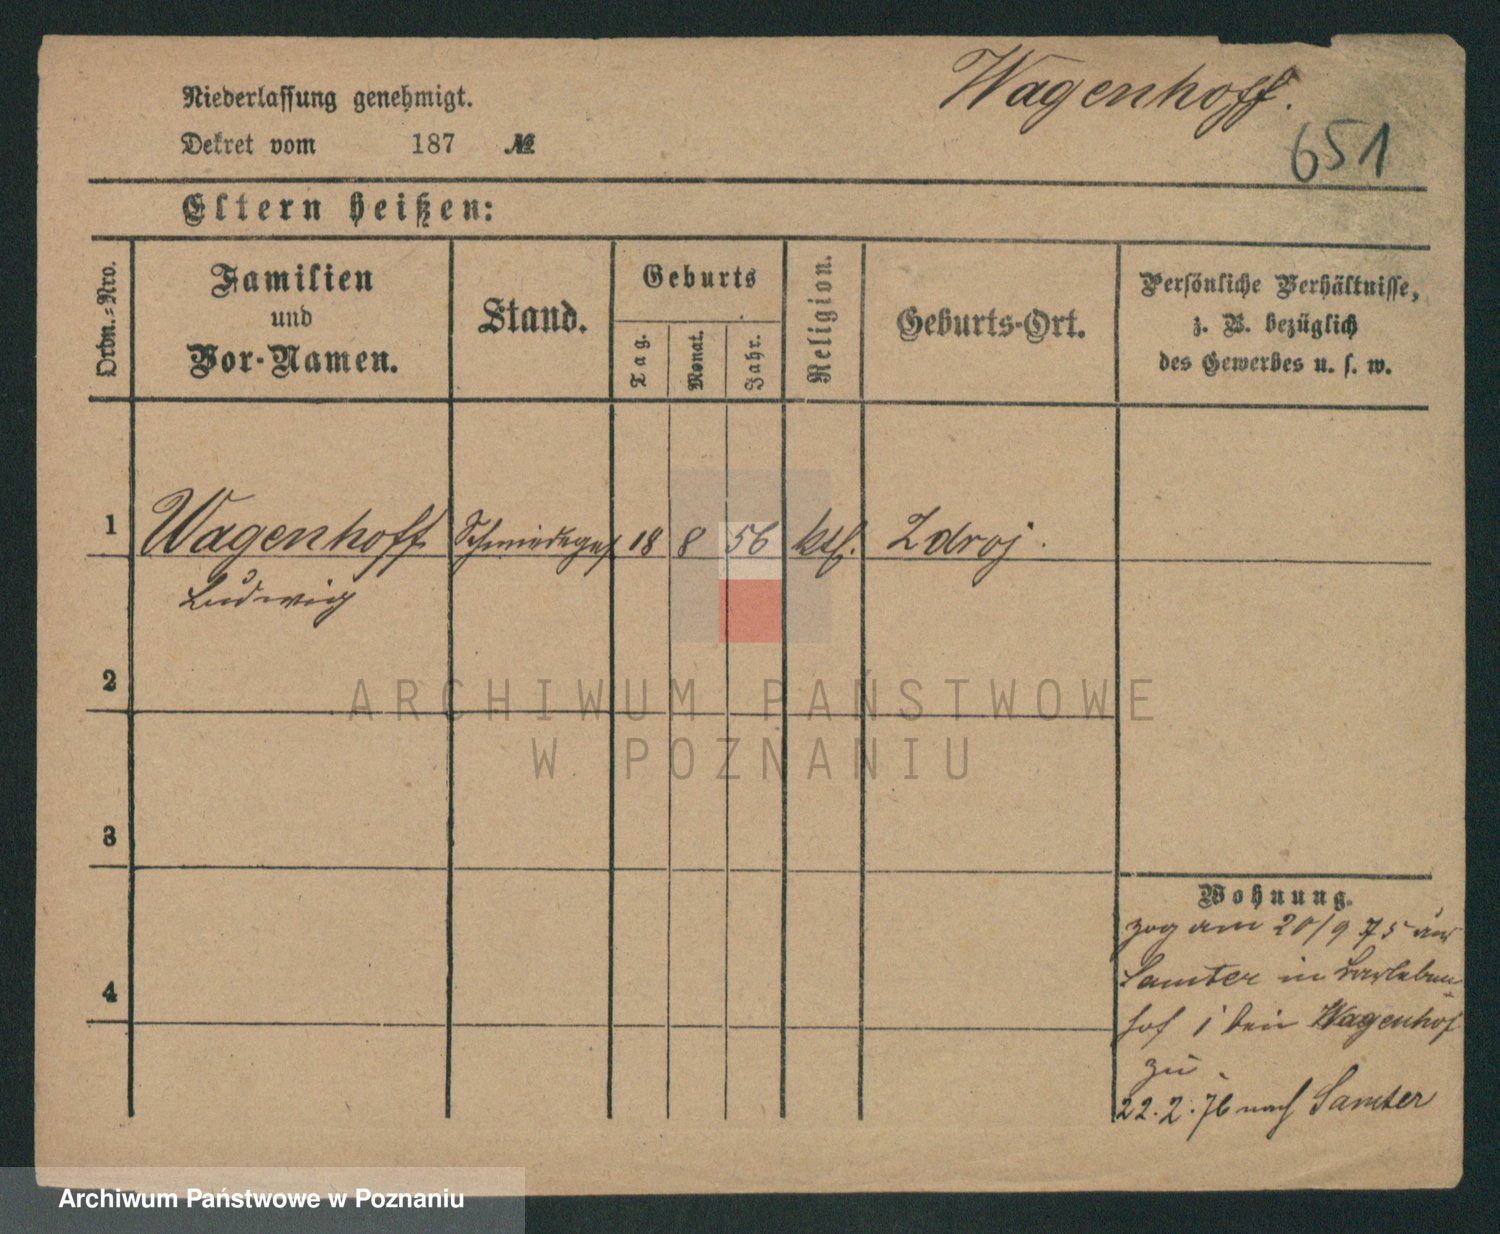 Wagenhoff.
651
Niederlassung genehmigt.
Dekret vom 187 №
Eltern heißen:
Ordn.-Nro.
Familien
und
Vor-Namen.
Stand.
Geburts
Tag.
Monat.
Jahr.
Religion.
Geburts-Ort.
Persönliche Verhältnisse,
z. B. bezüglich
des Gewerbes u. s. w.
1 Wagenhoff Schmiedeges 18 8 56 ktl. Zdroj.
Ludwig
2
3
4
Wohnung.
zog am 20/9 75 aus
Samter in
hof 1 bei Wagenhof
zu.
22.2.76 nach Samter
ARCHIWUM PAŃSTWOWE
W POZNANIU
Archiwum Państwowe w Poznaniu